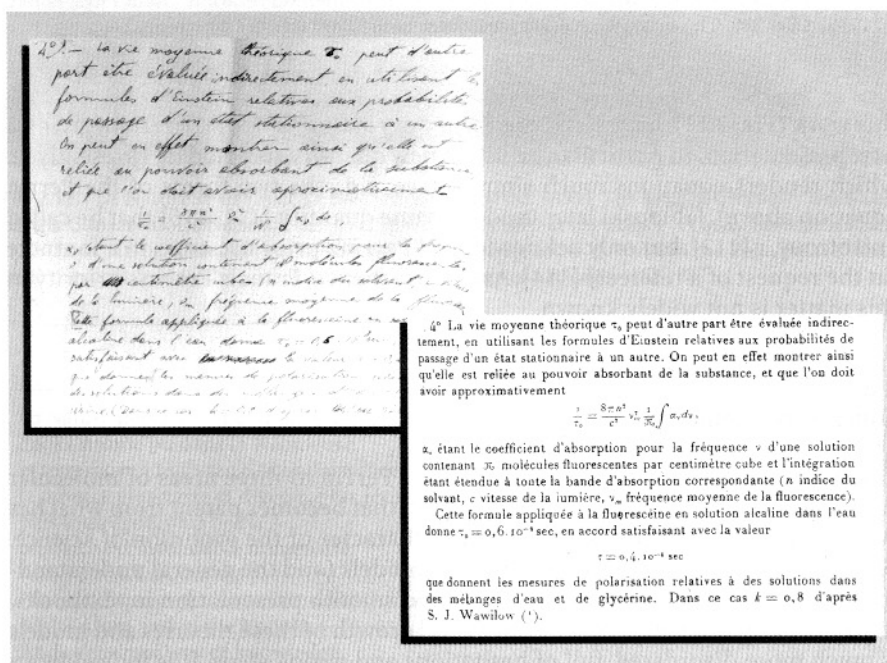 4°).— La vie moyenne théorique τ₀ peut d'autre
part être évaluée indirectement en utilisant
formules d'Einstein relatives aux probabilités
de passage d'un état stationnaire à un autre
On peut en effet montrer ainsi qu'elle est
reliée au pouvoir absorbant de la substance
et que l'on doit avoir aproximativement
1/τ₀ = 8πn²/c² 1/N ∫ αᵥ dν
αᵥ étant le coefficient d'absorption pour la
d'une solution contenant molécules fluorescentes
par centimètre cube (n indice du solvant,
de la lumière, fréquence moyenne de la
Cette formule appliquée à la fluorescéine en
alcaline dans l'eau donne τ₀ =
satisfaisant avec la valeur
que donnent les mesures de polarisation
des solutions dans des mélanges
4° La vie moyenne théorique τ₀ peut d'autre part être évaluée indirec-
tement, en utilisant les formules d'Einstein relatives aux probabilités de
passage d'un état stationnaire à un autre. On peut en effet montrer ainsi
qu'elle est reliée au pouvoir absorbant de la substance, et que l'on doit
avoir approximativement
1/τ₀ = 8πn²/c² ν²ₘ 1/𝔑 ∫ αᵥ dν,
αᵥ étant le coefficient d'absorption pour la fréquence ν d'une solution
contenant 𝔑 molécules fluorescentes par centimètre cube et l'intégration
étant étendue à toute la bande d'absorption correspondante (n indice du
solvant, c vitesse de la lumière, νₘ fréquence moyenne de la fluorescence).
Cette formule appliquée à la fluorescéine en solution alcaline dans l'eau
donne τ₀ = 0,6.10⁻⁸ sec, en accord satisfaisant avec la valeur
τ = 0,4.10⁻⁸ sec
que donnent les mesures de polarisation relatives à des solutions dans
des mélanges d'eau et de glycérine. Dans ce cas k = 0,8 d'après
S. J. Wawilow (¹).